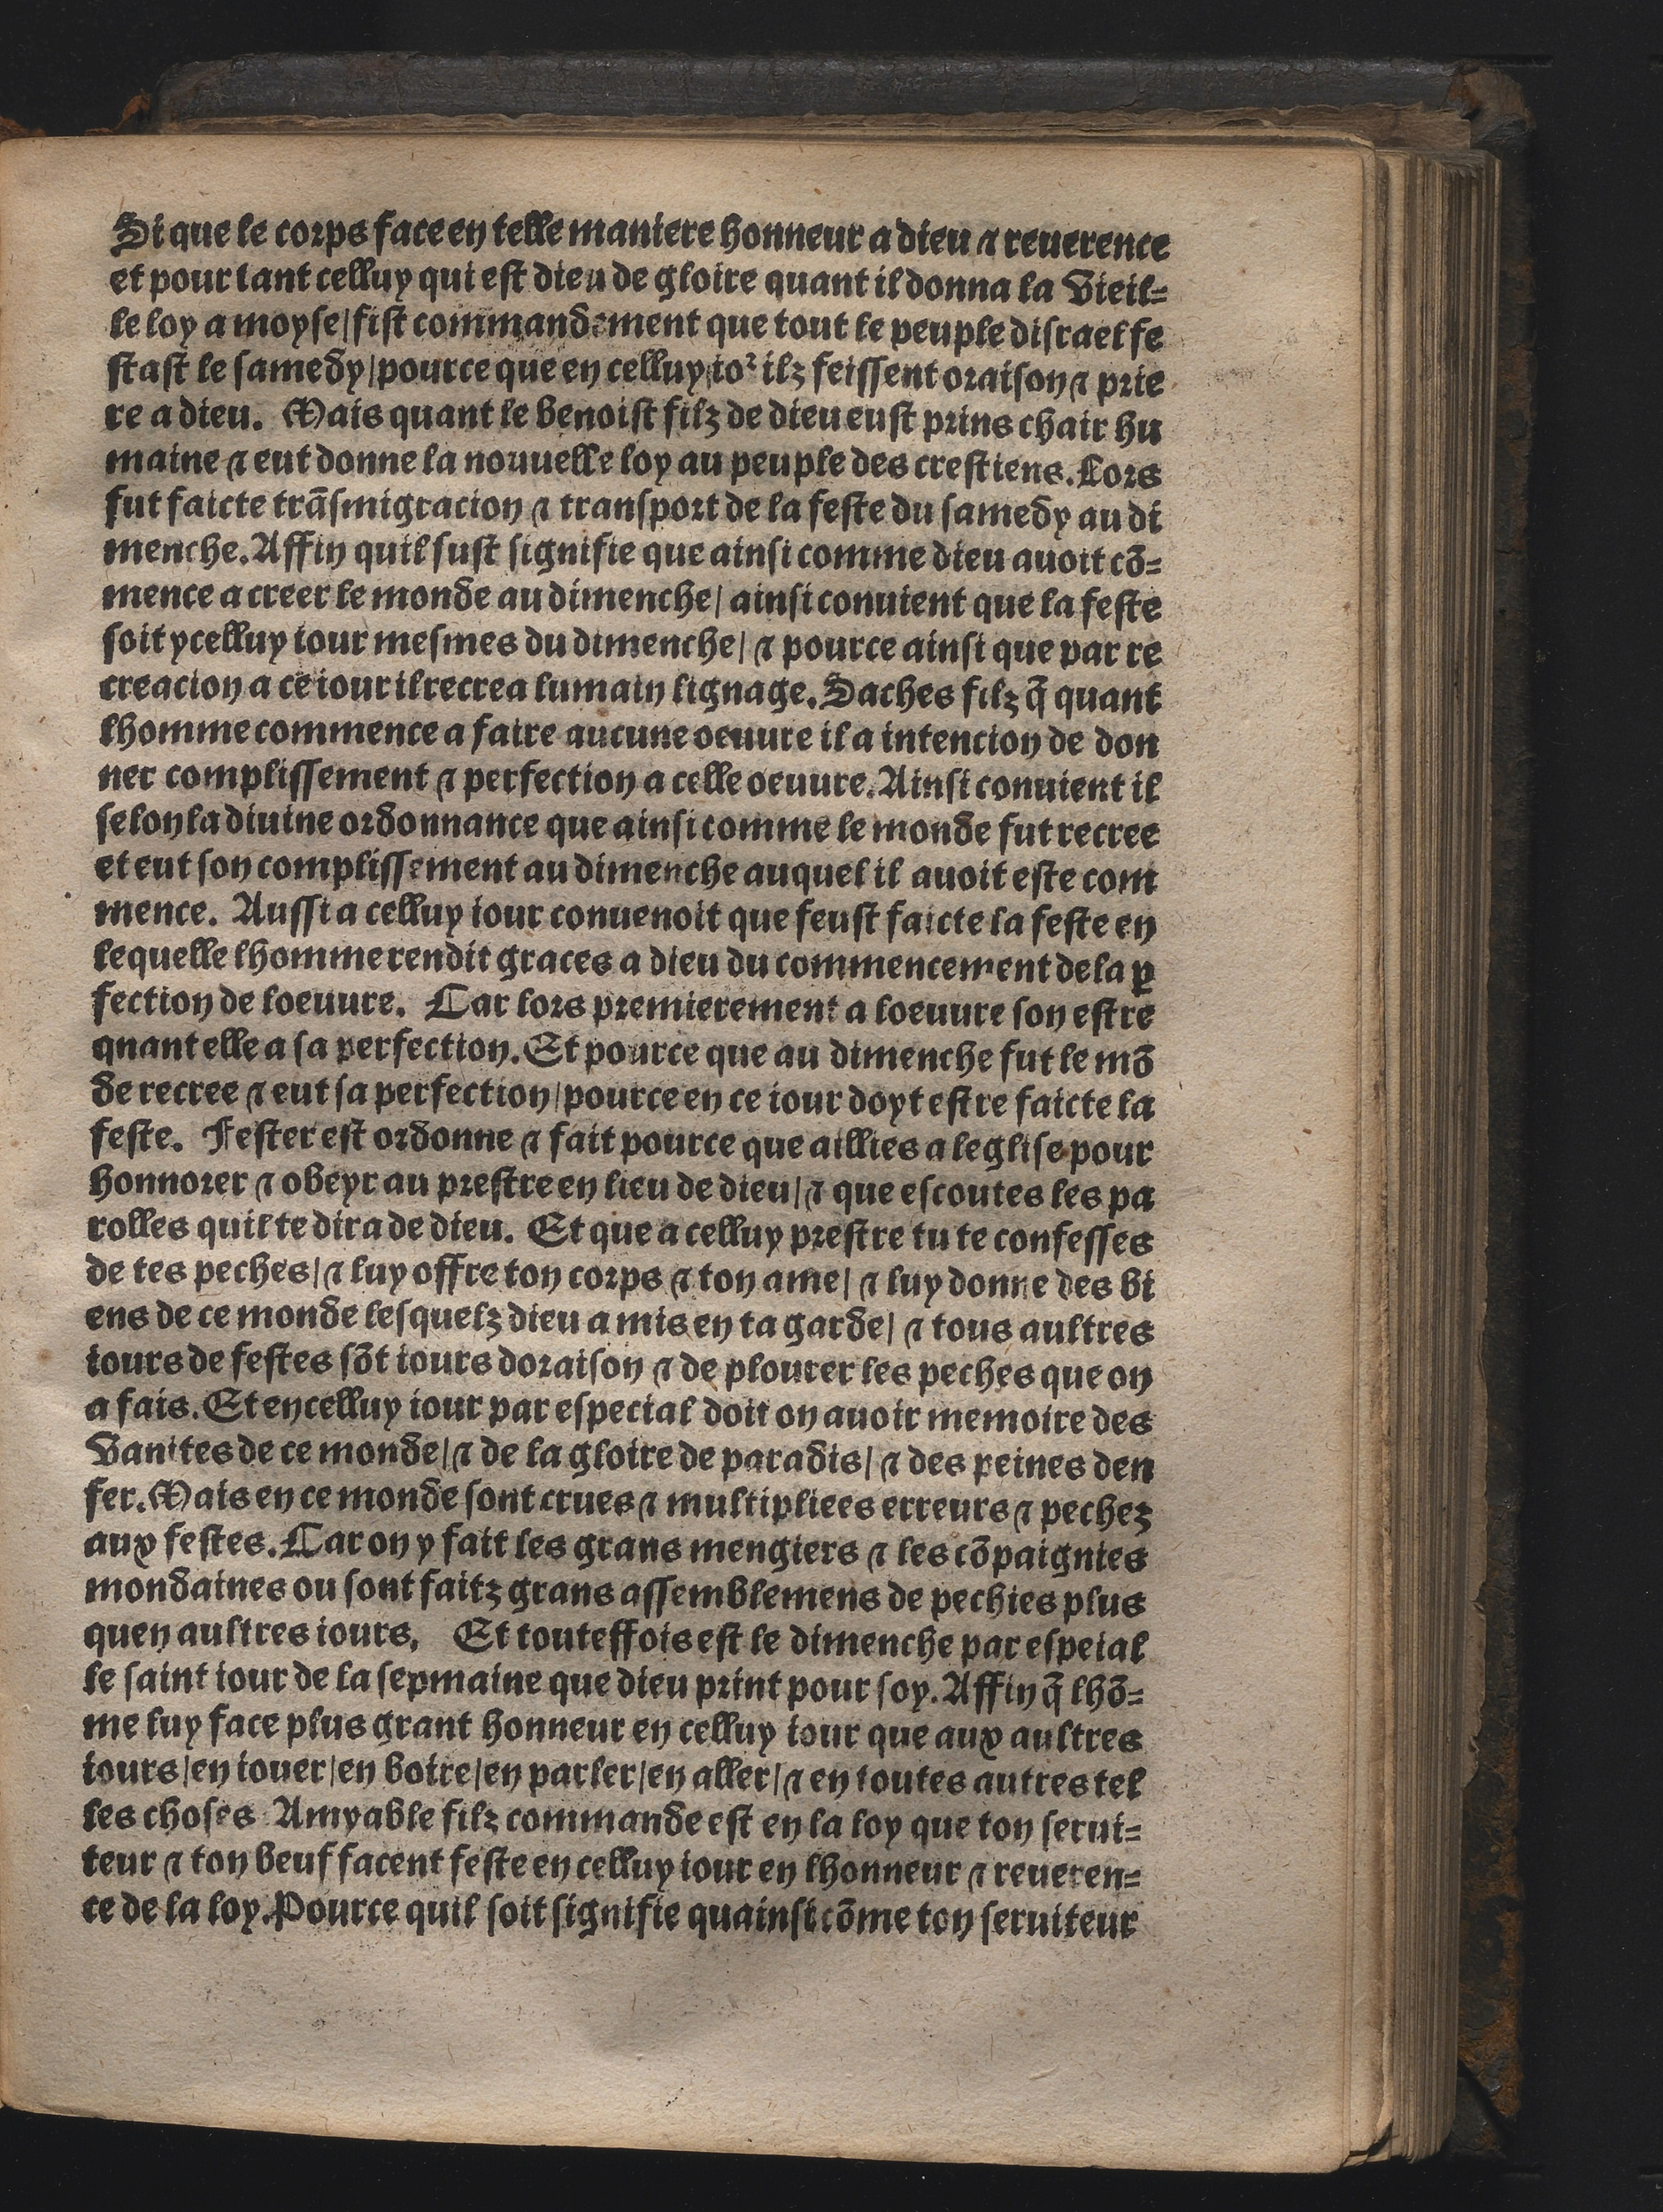 Si que le corps face en telle maniere honneur a dieu ⁊ reuerence
et pour tant celluy qui est dieu de gloire quant il donna la vieil=
le loy a moyse/fist commandement que tout le peuple disrael fe
stast le samedy/pource que en celluy ioᷣ ilz feissent oraison ⁊ prie
re a dieu. Mais quant le benoist filz de dieu eust prins chair hu
maine ⁊ eut donne la nouuelle loy au peuple des crestiens. Lors
fut faicte trãsmigracion ⁊ transport de la feste du samedy au di
menche. Affin quil fust signifie que ainsi comme dieu auoit cõ=
mence a creer le monde au dimenche/ ainsi conuient que la feste
soit ycelluy iour mesmes du dimenche/ ⁊ pource ainsi que par re
creacion a ce iour il recrea lumain lignage. Saches filz q̃ quant
lhomme commence a faire aucune oeuure il a intencion de don
ner complissement ⁊ perfection a celle oeuure. Ainsi conuient il
selon la diuine ordonnance que ainsi comme le monde fut recree
et eut son complissement au dimenche auquel il auoit este com
mence. Aussi a celluy iour conuenoit que feust faicte la feste en
lequelle lhomme rendit graces a dieu du commencement de la ꝑ
fection de loeuure. Car lors premierement a loeuure son estre
qnant elle a sa perfection. Et pource que au dimenche fut le mõ
de recree ⁊ eut sa perfection/pource en ce iour doyt estre faicte la
feste. Fester est ordonne ⁊ fait pource que aillies a leglise pour
honnorer ⁊ obeyr au prestre en lieu de dieu/ ⁊ que escoutes les pa
rolles quil te dira de dieu. Et que a celluy prestre tu te confesses
de tes peches/ ⁊ luy offre ton corps ⁊ ton ame/ ⁊ luy donne des bi
ens de ce monde lesquelz dieu a mis en ta garde/ ⁊ tous aultres
iours de festes sõt iours doraison ⁊ de plourer les peches que on
a fais. Et en celluy iour par especial doit on auoir memoire des
vanites de ce monde/ ⁊ de la gloire de paradis/ ⁊ des peines den
fer. Mais en ce monde sont crues ⁊ multipliees erreurs ⁊ pechez
aux festes. Car on y fait les grans mengiers ⁊ les cõpaignies
mondaines ou sont faitz grans assemblemens de pechies plus
quen aultres iours. Et touteffois est le dimenche par espeial
le saint iour de la sepmaine que dieu print pour soy. Affin q̃ lhõ=
me luy face plus grant honneur en celluy iour que aux aultres
iours/en iouer/en boire/en parler/en aller/ ⁊ en toutes autres tel
les choses Amyable filz commande est en la loy que ton serui=
teur ⁊ ton beuf facent feste en celluy iour en lhonneur ⁊ reueren=
ce de la loy. Pource quil soit signifie quainsi cõme ton seruiteur